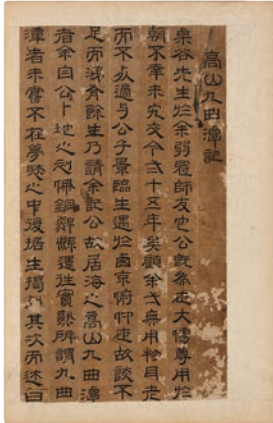 高山九曲潭記
栗谷先生於余弱冠師友也公旣爲世大儒尊用於
朝不幸未究今二十五年矣顧余無用物目老
而不死適與公子景臨生遇於西京俯仰疇故談不
足而涕有餘生乃請余記公故居海之高山九曲潭
者余自公卜地之初佩銅辭還往實熟所謂九曲
潭者未嘗不在夢寐之中後據生揭列其次而述曰